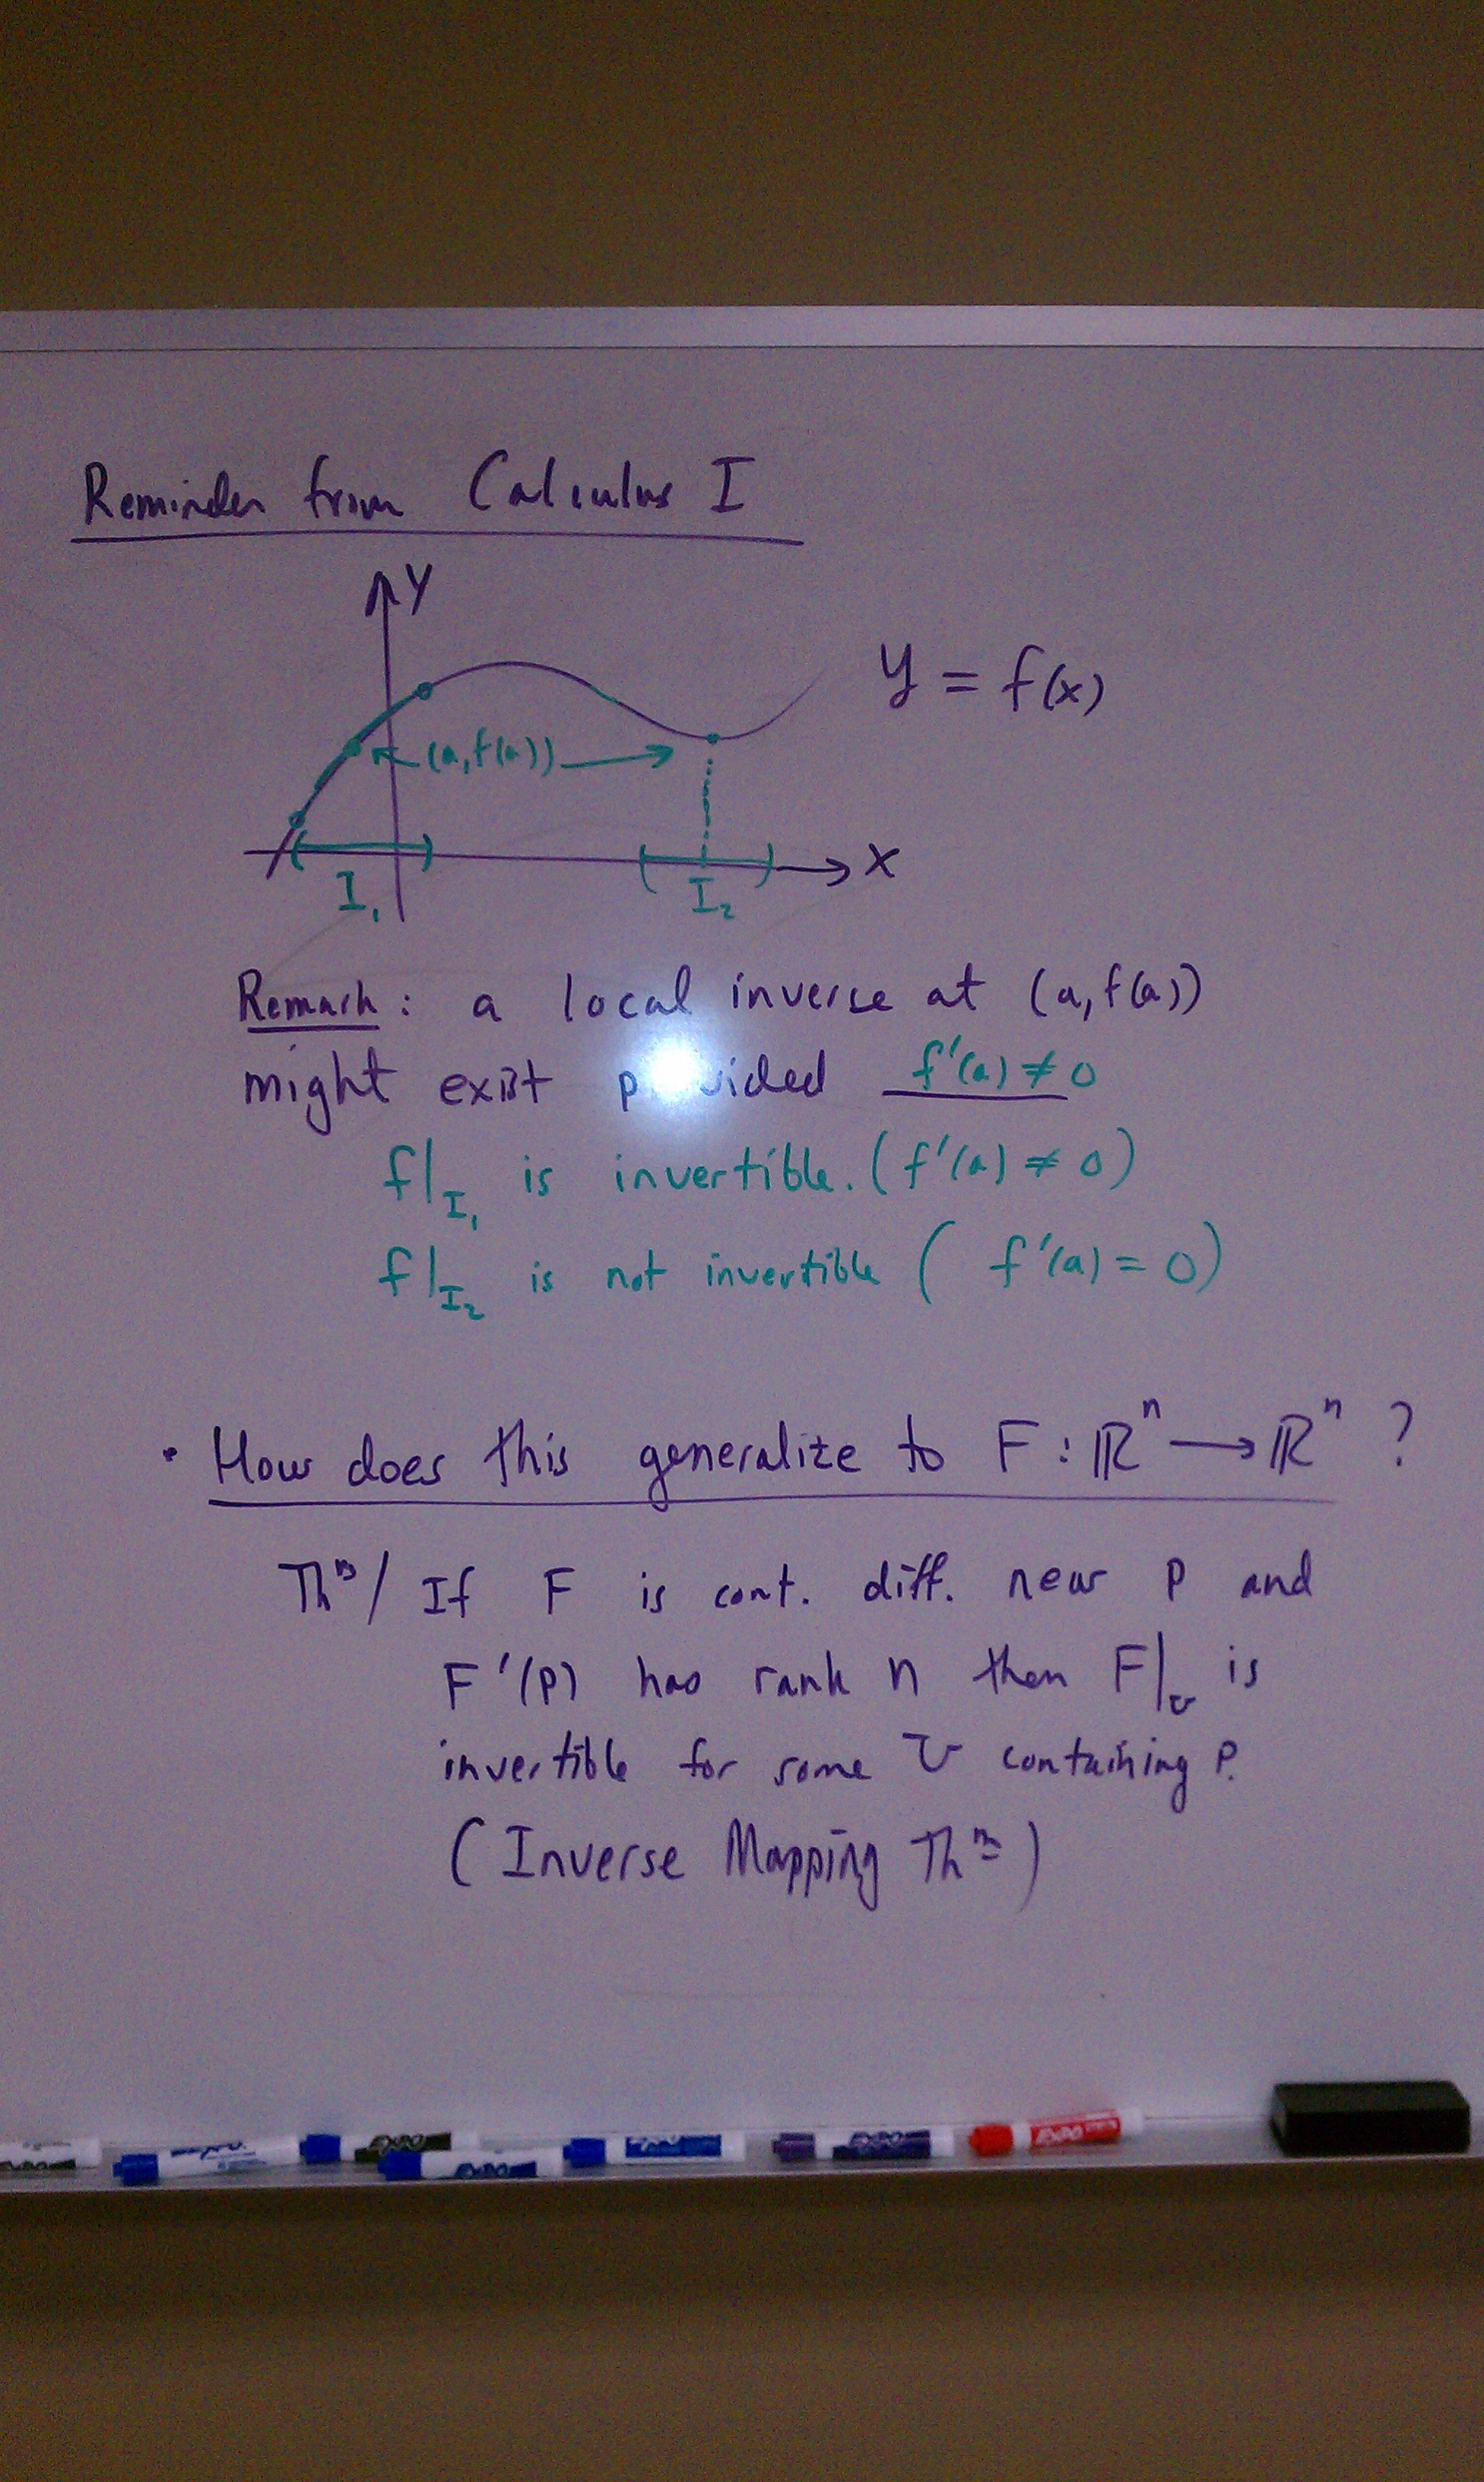 Reminder from Calculus I
Y
y = f(x)
(a, f(a))
X
I₁
I₂
Remark: a local inverse at (a, f(a))
might exist provided f'(a) ≠ 0
f|I₁ is invertible. (f'(a) ≠ 0)
f|I₂ is not invertible ( f'(a) = 0)
• How does this generalize to F: ℝⁿ → ℝⁿ ?
Thᵐ/ If F is cont. diff. near p and
F'(p) has rank n then F|U is
invertible for some U containing p.
(Inverse Mapping Thᵐ)
EXPO
EXPO
EXPO
EXPO